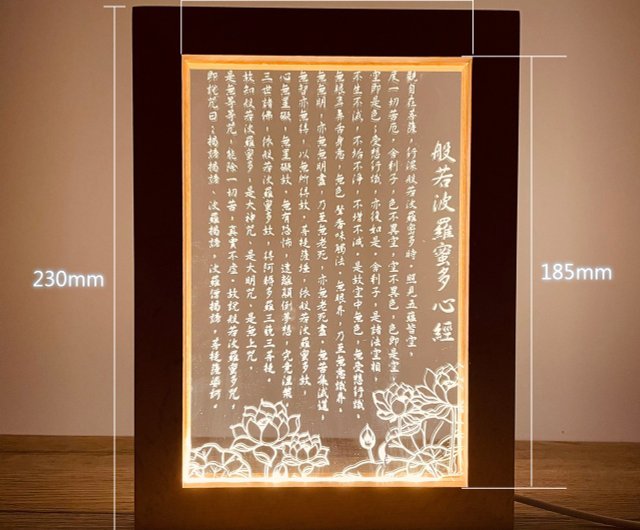 般若波羅蜜多心經
觀自在菩薩,行深般若波羅蜜多時,照見五蘊皆空,
度一切苦厄。舍利子,色不異空,空不異色,色即是空,
空即是色;受想行識,亦復如是。舍利子,是諸法空相,
不生不滅,不垢不淨,不增不減。是故空中無色,無受想行識,
無眼耳鼻舌身意,無色聲香味觸法。無眼界,乃至無意識界。
無無明,亦無無明盡,乃至無老死,亦無老死盡。無苦集滅道,
無智亦無得,以無所得故,菩提薩埵,依般若波羅蜜多故,
心無罣礙,無罣礙故,無有恐怖,遠離顛倒夢想,究竟涅槃。
三世諸佛,依般若波羅蜜多故,得阿耨多羅三藐三菩提。
故知般若波羅蜜多,是大神咒、是大明咒、是無上咒、
是無等等咒,能除一切苦,真實不虛。故說般若波羅蜜多咒。
即說咒曰:揭諦揭諦、波羅揭諦、波羅僧揭諦,菩提薩婆訶。
230mm
185mm